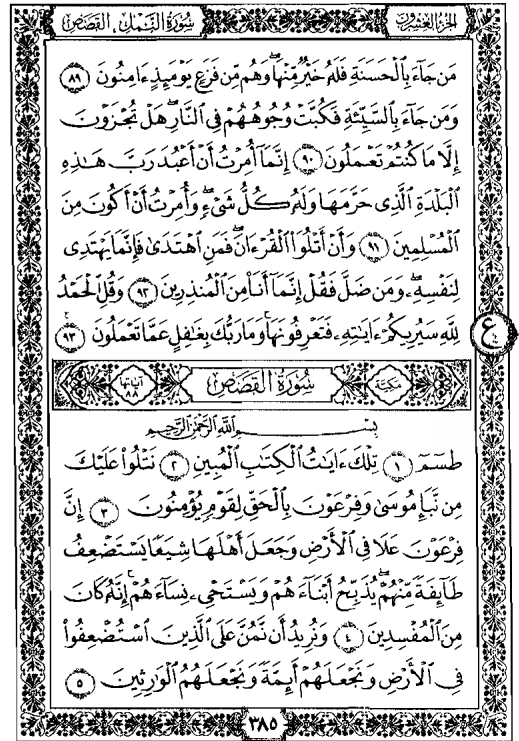 الجزء العشرون
سورة النمل ، القصص
مَن جَآءَ بِٱلْحَسَنَةِ فَلَهُۥ خَيْرٌ مِّنْهَا وَهُم مِّن فَزَعٍ يَوْمَئِذٍ ءَامِنُونَ ٨٩
وَمَن جَآءَ بِٱلسَّيِّئَةِ فَكُبَّتْ وُجُوهُهُمْ فِى ٱلنَّارِ هَلْ تُجْزَوْنَ
إِلَّا مَا كُنتُمْ تَعْمَلُونَ ٩٠ إِنَّمَآ أُمِرْتُ أَنْ أَعْبُدَ رَبَّ هَٰذِهِ
ٱلْبَلْدَةِ ٱلَّذِى حَرَّمَهَا وَلَهُۥ كُلُّ شَىْءٍ ۖ وَأُمِرْتُ أَنْ أَكُونَ مِنَ
ٱلْمُسْلِمِينَ ٩١ وَأَنْ أَتْلُوَا۟ ٱلْقُرْءَانَ ۖ فَمَنِ ٱهْتَدَىٰ فَإِنَّمَا يَهْتَدِى
لِنَفْسِهِۦ ۖ وَمَن ضَلَّ فَقُلْ إِنَّمَآ أَنَا۠ مِنَ ٱلْمُنذِرِينَ ٩٢ وَقُلِ ٱلْحَمْدُ
لِلَّهِ سَيُرِيكُمْ ءَايَٰتِهِۦ فَتَعْرِفُونَهَا ۚ وَمَا رَبُّكَ بِغَٰفِلٍ عَمَّا تَعْمَلُونَ ٩٣
ع
مكية
سُورَةُ القَصَصِ
آياتها ٨٨
بِسْمِ ٱللَّهِ ٱلرَّحْمَٰنِ ٱلرَّحِيمِ
طسٓمٓ ١ تِلْكَ ءَايَٰتُ ٱلْكِتَٰبِ ٱلْمُبِينِ ٢ نَتْلُوا۟ عَلَيْكَ
مِن نَّبَإِ مُوسَىٰ وَفِرْعَوْنَ بِٱلْحَقِّ لِقَوْمٍ يُؤْمِنُونَ ٣ إِنَّ
فِرْعَوْنَ عَلَا فِى ٱلْأَرْضِ وَجَعَلَ أَهْلَهَا شِيَعًا يَسْتَضْعِفُ
طَآئِفَةً مِّنْهُمْ يُذَبِّحُ أَبْنَآءَهُمْ وَيَسْتَحْىِۦ نِسَآءَهُمْ ۚ إِنَّهُۥ كَانَ
مِنَ ٱلْمُفْسِدِينَ ٤ وَنُرِيدُ أَن نَّمُنَّ عَلَى ٱلَّذِينَ ٱسْتُضْعِفُوا۟
فِى ٱلْأَرْضِ وَنَجْعَلَهُمْ أَئِمَّةً وَنَجْعَلَهُمُ ٱلْوَٰرِثِينَ ٥
٣٨٥